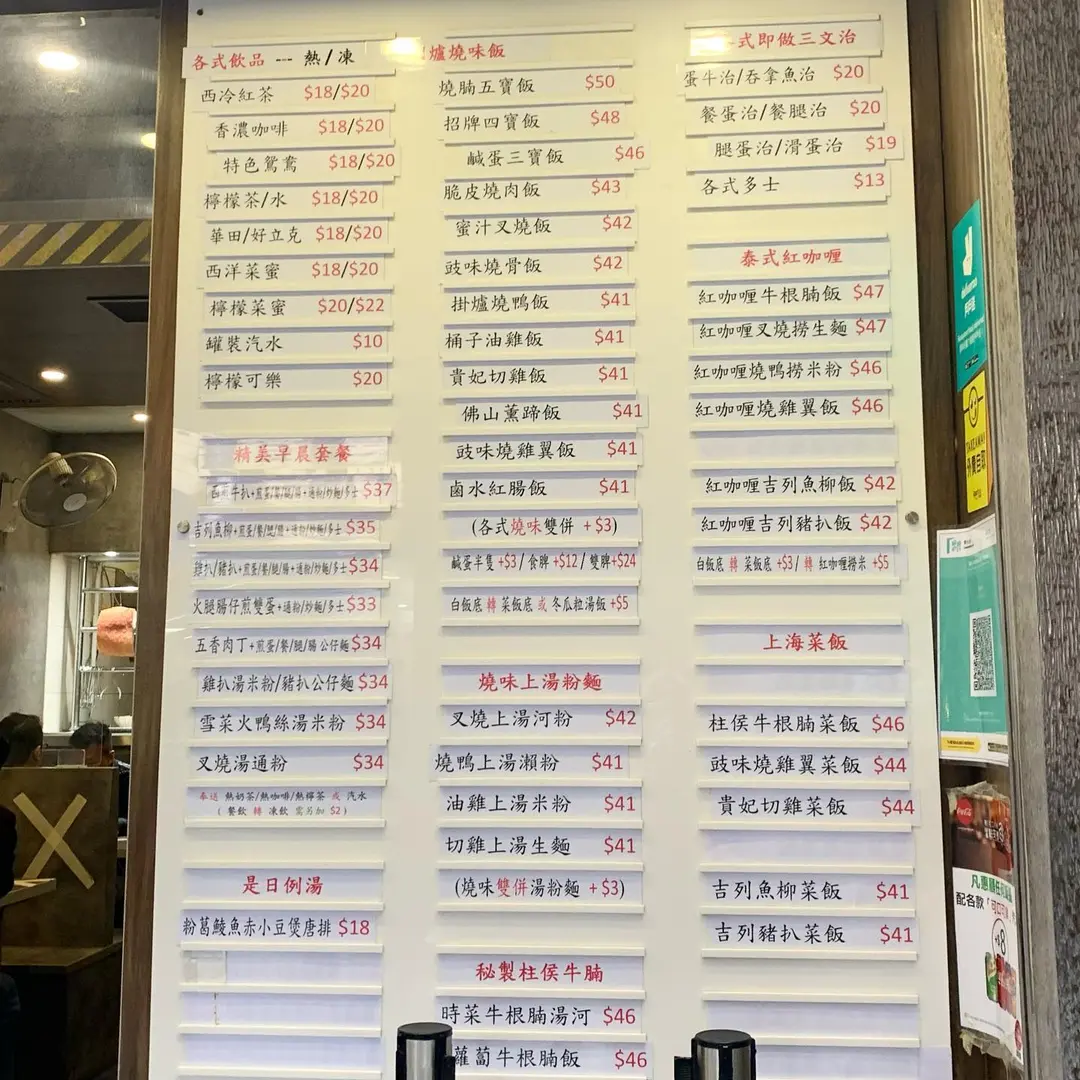 各式飲品 --- 熱/凍
西冷紅茶 $18/$20
香濃咖啡 $18/$20
特色鴛鴦 $18/$20
檸檬茶/水 $18/$20
華田/好立克 $18/$20
西洋菜蜜 $18/$20
檸檬菜蜜 $20/$22
罐裝汽水 $10
檸檬可樂 $20
精美早晨套餐
牛扒+煎蛋/餐/腿/腸+通粉/炒麵/多士 $37
吉列魚柳+煎蛋/餐/腿/腸+通粉/炒麵/多士 $35
雞扒/豬扒+煎蛋/餐/腿/腸+通粉/炒麵/多士 $34
火腿腸仔煎雙蛋+通粉/炒麵/多士 $33
五香肉丁+煎蛋/餐/腿/腸 公仔麵 $34
雞扒湯米粉/豬扒公仔麵 $34
雪菜火鴨絲湯米粉 $34
叉燒湯通粉 $34
奉送 熱奶茶/熱咖啡/熱檸茶 或 汽水
(餐飲 轉 凍飲 需另加 $2)
是日例湯
粉葛鯪魚赤小豆煲唐排 $18
爐燒味飯
燒腩五寶飯 $50
招牌四寶飯 $48
鹹蛋三寶飯 $46
脆皮燒肉飯 $43
蜜汁叉燒飯 $42
豉味燒骨飯 $42
掛爐燒鴨飯 $41
桶子油雞飯 $41
貴妃切雞飯 $41
佛山薰蹄飯 $41
豉味燒雞翼飯 $41
鹵水紅腸飯 $41
(各式燒味雙併 +$3)
鹹蛋半隻+$3/食髀+$12/雙髀+$24
白飯底 轉 菜飯底 或 冬瓜粒湯飯 +$5
燒味上湯粉麵
叉燒上湯河粉 $42
燒鴨上湯瀨粉 $41
油雞上湯米粉 $41
切雞上湯生麵 $41
(燒味雙併湯粉麵 +$3)
秘製柱侯牛腩
時菜牛根腩湯河 $46
蘿蔔牛根腩飯 $46
式即做三文治
蛋牛治/吞拿魚治 $20
餐蛋治/餐腿治 $20
腿蛋治/滑蛋治 $19
各式多士 $13
泰式紅咖喱
紅咖喱牛根腩飯 $47
紅咖喱叉燒撈生麵 $47
紅咖喱燒鴨撈米粉 $46
紅咖喱燒雞翼飯 $46
紅咖喱吉列魚柳飯 $42
紅咖喱吉列豬扒飯 $42
白飯底 轉 菜飯底+$3/ 轉 紅咖喱撈米 +$5
上海菜飯
柱侯牛根腩菜飯 $46
豉味燒雞翼菜飯 $44
貴妃切雞菜飯 $44
吉列魚柳菜飯 $41
吉列豬扒菜飯 $41